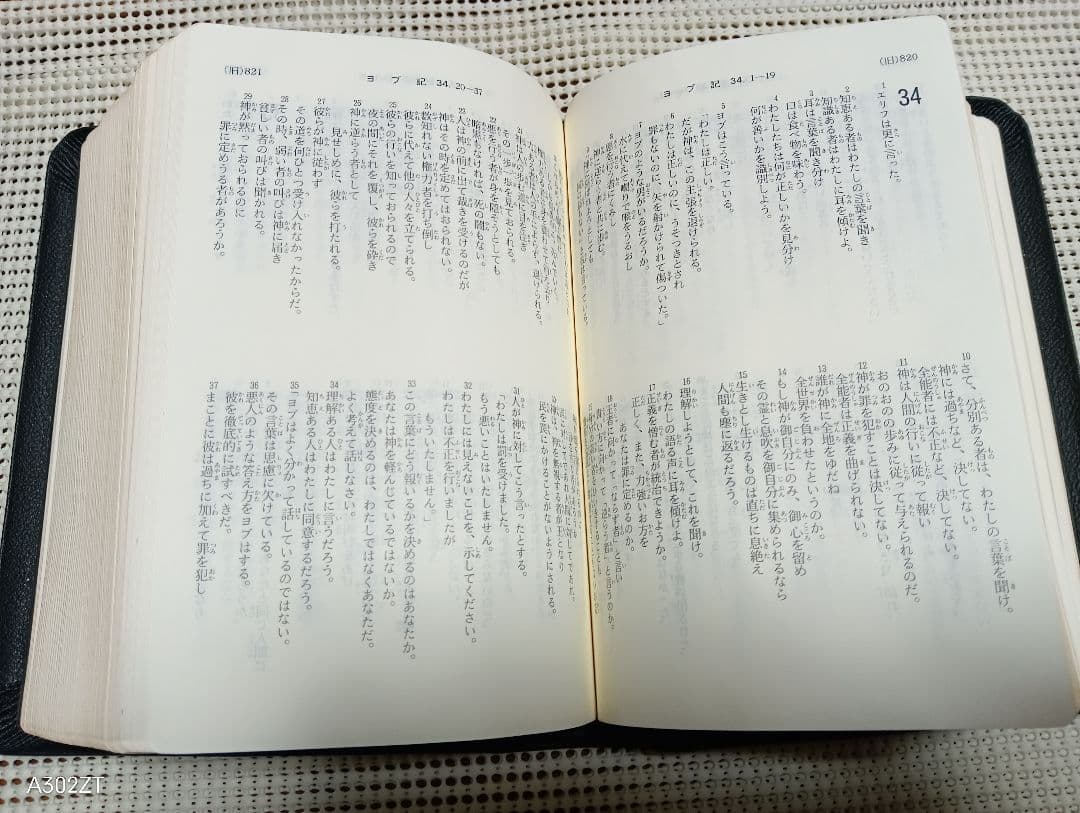 (旧)820
ヨブ記 34.1—19
34
1 エリフは更に言った。
2 知恵ある者はわたしの言葉を聞き
知識ある者はわたしに耳を傾けよ。
3 耳は言葉を聞き分け
口は食べ物を味わう。
4 わたしたちは何が正しいかを見分け
何が善いかを識別しよう。
5 ヨブはこう言っている。
「わたしは正しい。
だが神は、この主張を退けられる。
6 わたしは正しいのに、うそつきとされ
罪もないのに、矢を射かけられて傷ついた。」
7 ヨブのような男がいるだろうか。
水に代えて嘲りで喉をうるおし
10 さて、分別ある者は、わたしの言葉を聞け。
神には過ちなど、決してない。
全能者には不正など、決してない。
11 神は人間の行いに従って報い
おのおのの歩みに従って与えられるのだ。
12 神が罪を犯すことは決してない。
全能者は正義を曲げられない。
13 誰が神に全地をゆだね
全世界を負わせたというのか。
14 もし神が御自分にのみ、御心を留め
その霊と息吹を御自分に集められるなら
15 生きとし生けるものは直ちに息絶え
人間も塵に返るだろう。
16 理解しようとして、これを聞け。
わたしの語る声に耳を傾けよ。
17 正義を憎む者が統治できようか。
正しく、また、力強いお方を
あなたは罪に定めるのか。
18 王者に向かって「ならず者」と言い
(旧)821
ヨブ記 34.20—37
その一歩一歩を見ておられる。
22 悪を行う者が身を隠そうとしても
暗黒もなければ、死の闇もない。
23 人は神の前に出て裁きを受けるのだが
神はその時を定めてはおられない。
24 数知れない権力者を打ち倒し
彼らに代えて他の人々を立てられる。
25 彼らの行いを知っておられるので
夜の間にそれを覆し、彼らを砕き
26 神に逆らう者として
見せしめに、彼らを打たれる。
27 彼らが神に従わず
その道を何ひとつ受け入れなかったからだ。
28 その時、弱い者の叫びは神に届き
貧しい者の叫びは聞かれる。
29 神が黙っておられるのに
罪に定めうる者があろうか。
民を罠にかけることがないようにされる。
31 人が神に対してこう言ったとする。
「わたしは罰を受けました。
もう悪いことはいたしません。
32 わたしには見えないことを、示してください。
わたしは不正を行いましたが
もういたしません。」
33 この言葉にどう報いるかを決めるのはあなたか。
あなたは神を軽んじているではないか。
態度を決めるのは、わたしではなくあなただ。
よく考えて話しなさい。
34 理解ある人はわたしに言うだろう。
知恵ある人はわたしに同意するだろう。
35 「ヨブはよく分かって話しているのではない。
その言葉は思慮に欠けている。
36 悪人のような答え方をヨブはする。
彼を徹底的に試すべきだ。
37 まことに彼は過ちに加えて罪を犯し
A302ZT